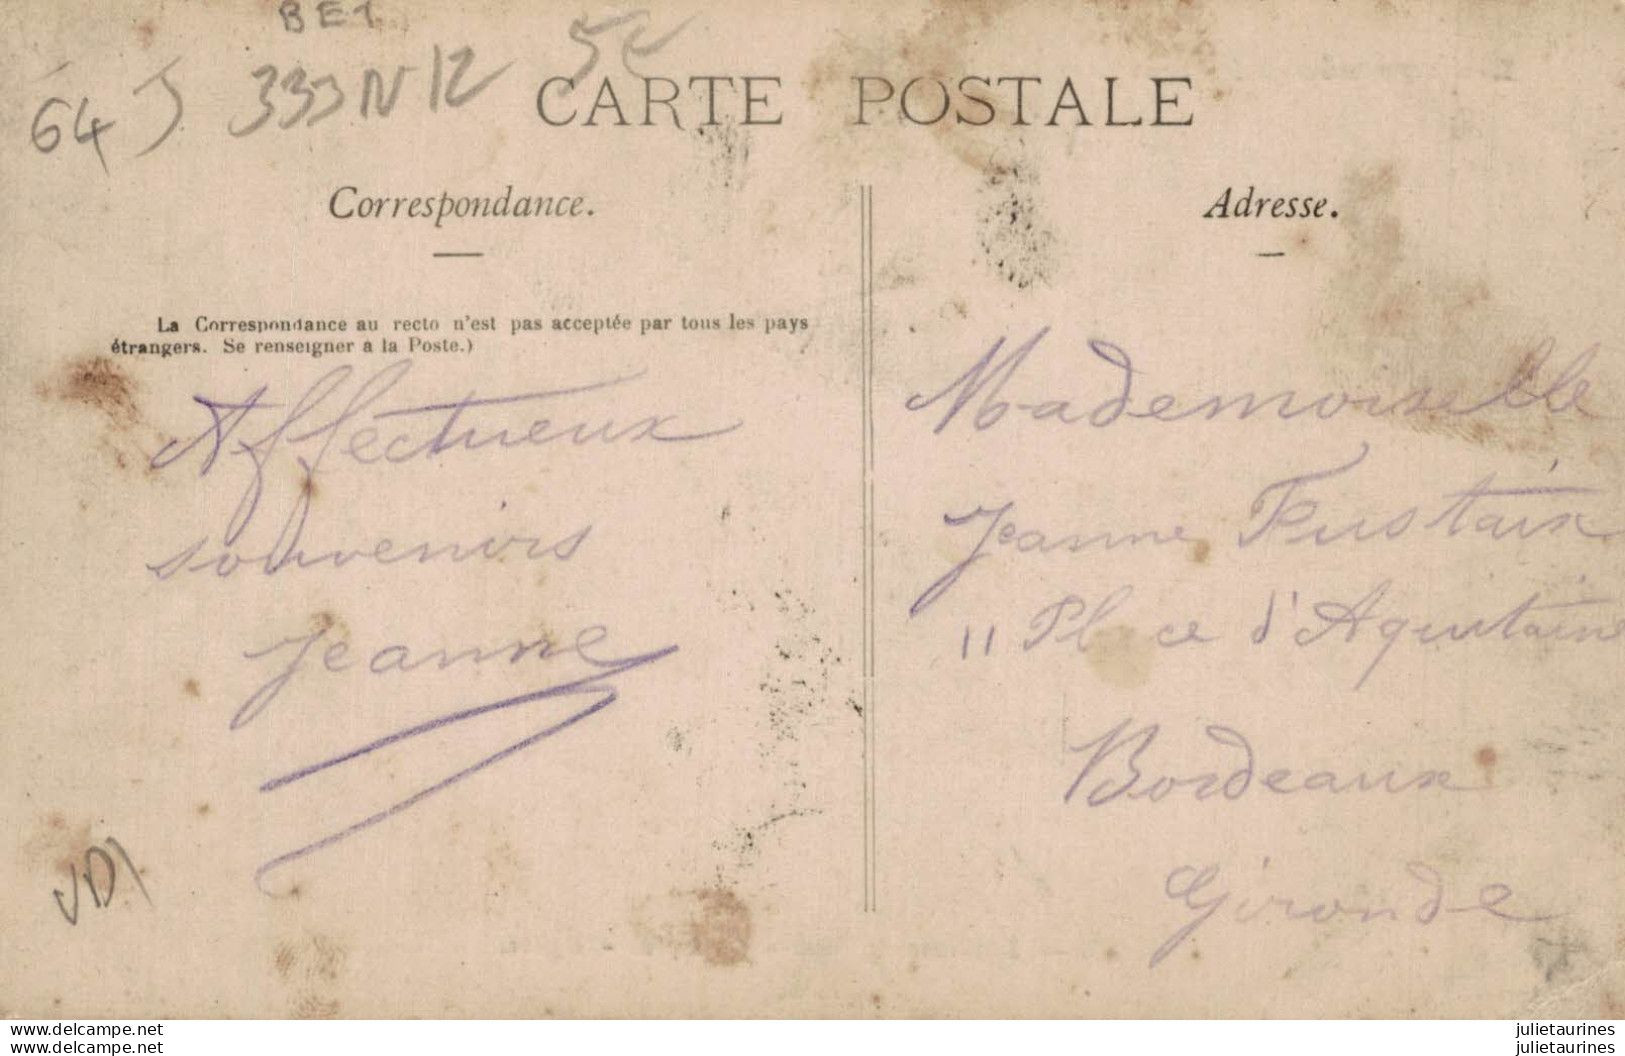 BET
64 J 333 N 12 5c
CARTE POSTALE
Correspondance.
La Correspondance au recto n'est pas acceptée par tous les pays
étrangers. Se renseigner a la Poste.)
Affectueux
souvenirs
Jeanne
VD1
Adresse.
Mademoiselle
Jeanne Fustaix
11 Place d'Aquitaine
Bordeaux
Gironde
www.delcampe.net
www.delcampe.net
julietaurines
julietaurines